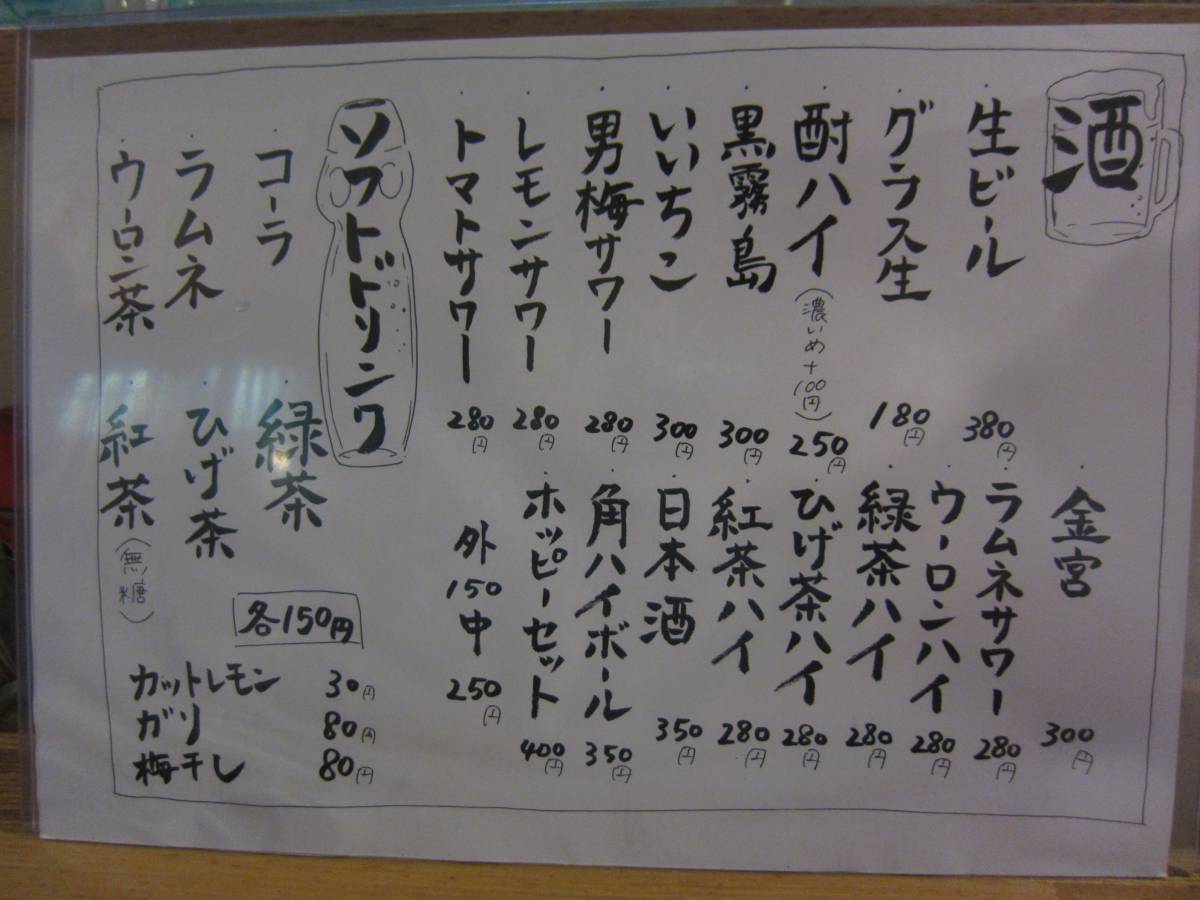 酒
生ビール 380円
グラス生 180円
酎ハイ(濃いめ+100円) 250円
黒霧島 300円
いいちこ 300円
男梅サワー 280円
レモンサワー 280円
トマトサワー 280円
金宮 300円
ラムネサワー 280円
ウーロンハイ 280円
緑茶ハイ 280円
ひげ茶ハイ 280円
紅茶ハイ 280円
日本酒 350円
角ハイボール 350円
ホッピーセット 400円
外150 中250円
ソフトドリンク
コーラ
ラムネ
ウーロン茶
緑茶
ひげ茶
紅茶(無糖)
各150円
カットレモン 30円
ガリ 80円
梅干し 80円